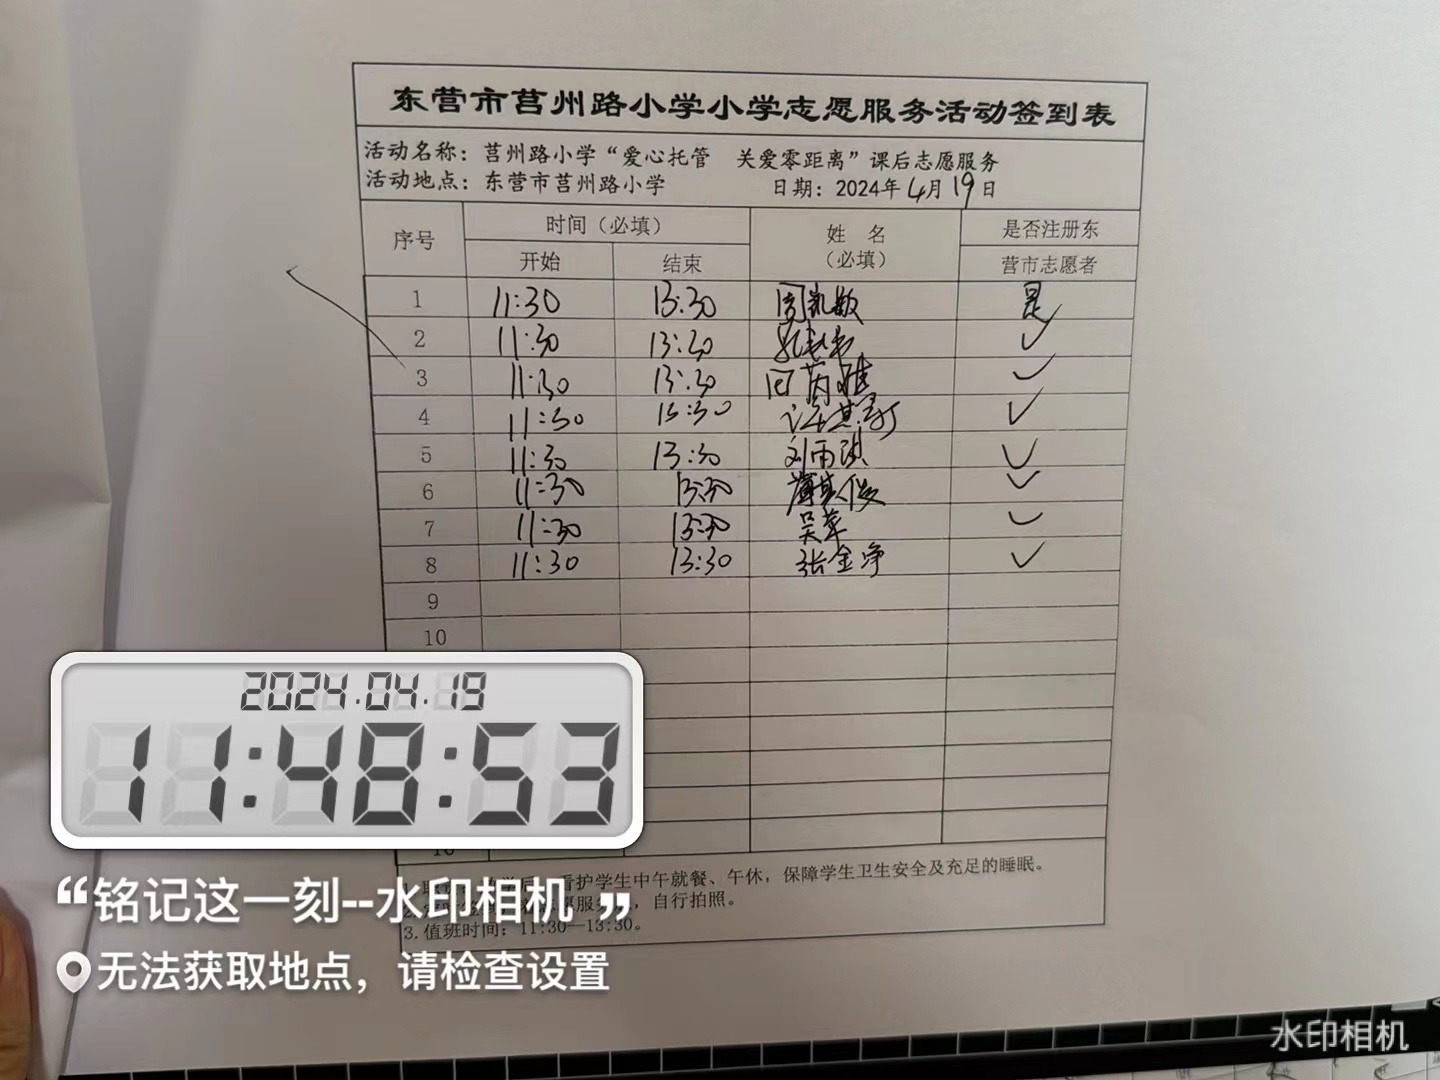 东营市莒州路小学小学志愿服务活动签到表
活动名称：莒州路小学“爱心托管 关爱零距离”课后志愿服务
活动地点：东营市莒州路小学 日期：2024年4月19日
序号 时间（必填） 姓 名（必填） 是否注册东营市志愿者
开始 结束
1 11:30 13:30 周凯敏 是
2 11:30 13:30 ✓
3 11:30 13:30 茵雅 ✓
4 11:30 13:30 ✓
5 11:30 13:30 刘雨琪 ✓
6 11:30 13:30 ✓
7 11:30 13:30 吴苹 ✓
8 11:30 13:30 张金净 ✓
9
10
看护学生中午就餐、午休，保障学生卫生安全及充足的睡眠。
，自行拍照。
3.值班时间：11:30—13:30。
2024.04.19
11:48:53
“铭记这一刻--水印相机”
无法获取地点，请检查设置
水印相机